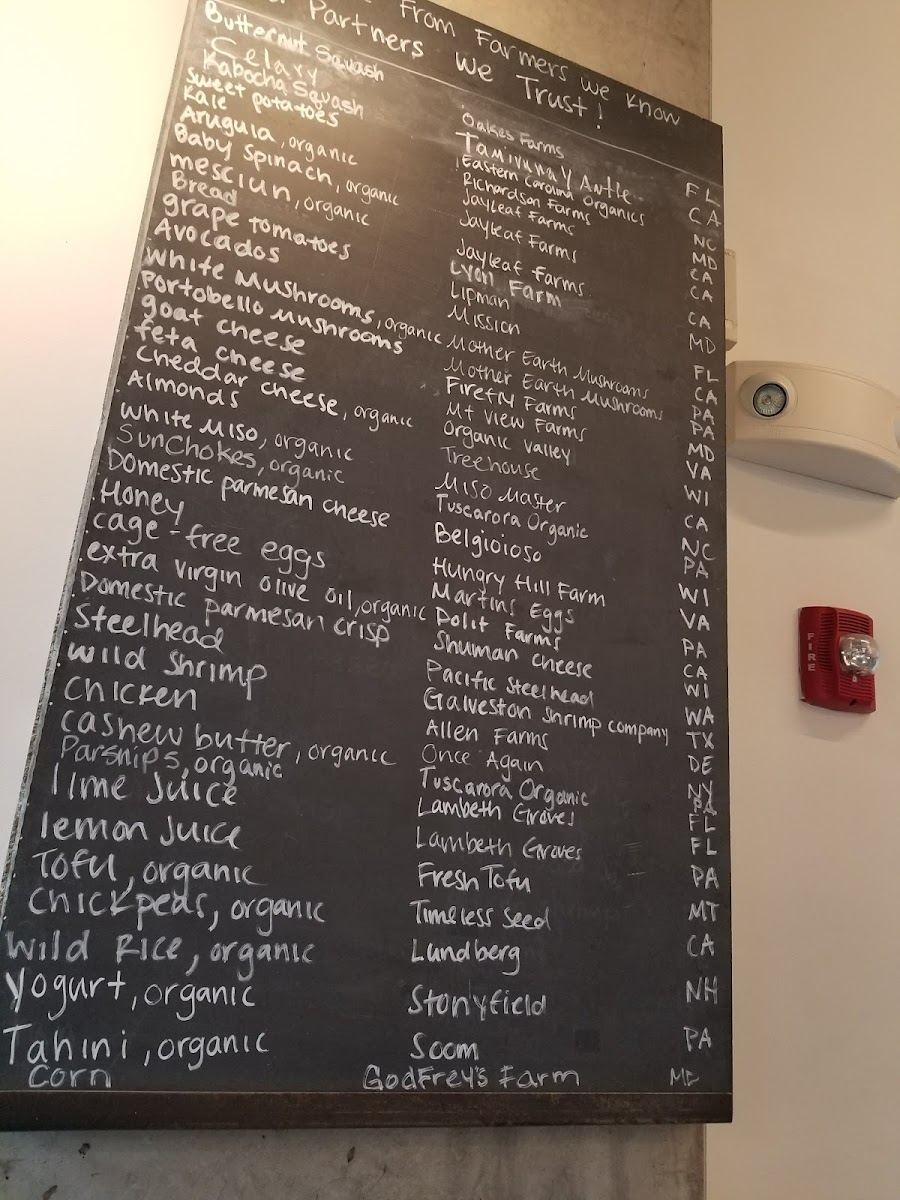 From Farmers we know
Partners we Trust!
Butternut Squash Oakes Farms FL
Celary Antle CA
Kabocha Squash
Sweet potatoes Eastern Carolina Organics NC
Kale Richardson Farms MD
Arugula, organic Jayleaf Farms CA
Baby Spinach, organic Jayleaf Farms CA
mesclun, organic Jayleaf Farms CA
Bread Lyon Farm MD
grape tomatoes Lipman FL
Avocados Mission CA
White Mushrooms, organic Mother Earth Mushrooms PA
Portobello Mushrooms Mother Earth Mushrooms PA
goat cheese Firefly Farms MD
feta cheese Mt View Farms VA
Cheddar cheese, organic Organic Valley WI
Almonds Treehouse CA
White Miso, organic Miso Master NC
Sunchokes, organic Tuscarora Organic PA
Domestic parmesan cheese Belgioioso WI
Honey Hungry Hill Farm VA
cage-free eggs Martins Eggs PA
extra virgin olive oil, organic Polit Farms CA
Domestic parmesan crisp Shuman cheese WI
Steelhead Pacific Steelhead WA
Wild Shrimp Galveston Shrimp company TX
Chicken Allen Farms DE
cashew butter, organic Once Again NY
Parsnips, organic Tuscarora Organic PA
lime Juice Lambeth Groves FL
lemon Juice Lambeth Groves FL
Tofu, organic Fresh Tofu PA
Chickpeas, organic Timeless Seed MT
Wild Rice, organic Lundberg CA
Yogurt, organic Stonyfield NH
Tahini, organic Soom PA
Corn Godfrey's Farm MD
FIRE